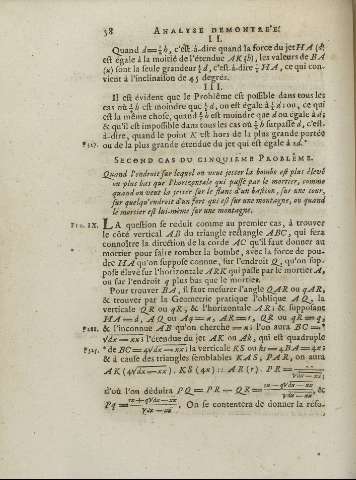 58 ANALYSE DEMONTRE'E.
II.
Quand d = ½b, c'est à-dire quand la force du jet HA (d)
est égale à la moitié de l'étendue AK (b), les valeurs de BA
(x) sont la seule grandeur ½d, c'est à-dire ½HA, ce qui con-
vient à l'inclinaison de 45 degrés.
III.
Il est évident que le Problême est possible dans tous les
cas où ½b est moindre que d, ou est égale à d; ou, ce qui
est la même chose, quand b est moindre que d ou égale à d;
& qu'il est impossible dans tous les cas où b surpasse d, c'est-
à-dire, quand le point K est hors de la plus grande portée
ou de la plus grande étendue du jet qui est égale à 2d.*
SECOND CAS DU CINQUIEME PROBLÊME.
Quand l'endroit sur lequel on veut jetter la bombe est plus élevé
ou plus bas que l'horizontale qui passe par le mortier, comme
quand on veut la jetter sur le flanc d'un bastion, sur une tour,
sur quelqu'endroit d'un fort qui est sur une montagne, ou quand
le mortier est lui-même sur une montagne.
FIG. IX. LA question se reduit comme au premier cas, à trouver
le côté vertical AB du triangle rectangle ABC, qui fera
connoître la direction de la corde AC qu'il faut donner au
mortier pour faire tomber la bombe, avec la force de pou-
dre HA qu'on suppose connue, sur l'endroit Q, qu'on sup-
pose élevé sur l'horizontale ARK qui passe par le mortier A,
ou sur l'endroit q plus bas que le mortier.
Pour trouver BA, il faut mesurer l'angle QAR ou qAR,
& trouver par la Geometrie pratique l'oblique AQ, la
verticale QR ou qR, & l'horizontale AR; & supposant
HA = d, AQ ou Aq = , AR = , QR ou qR = q,
& l'inconnue AB qu'on cherche = x; l'on aura BC =*
√dx − xx; l'étendue du jet AK ou Ak, qui est quadruple
* de BC = 4√dx − xx; la verticale KS ou ks = 4BA = 4x;
& à cause des triangles semblables KAS, PAR, on aura
AK (4√dx − xx). KS (4x) :: AR (r). PR =
d'où l'on déduira PQ = PR − QR = &
Pq = . On se contentera de donner la réso-